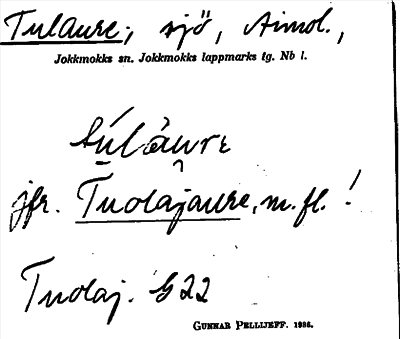 Tulaure, sjö, Aimol.,
Jokkmokks sn. Jokkmokks lappmarks tg. Nb l.
túlàurε
jfr. Tuolajaure, m. fl. !
Tuolaj. G 22
GUNNAR PELLIJEFF. 1936.